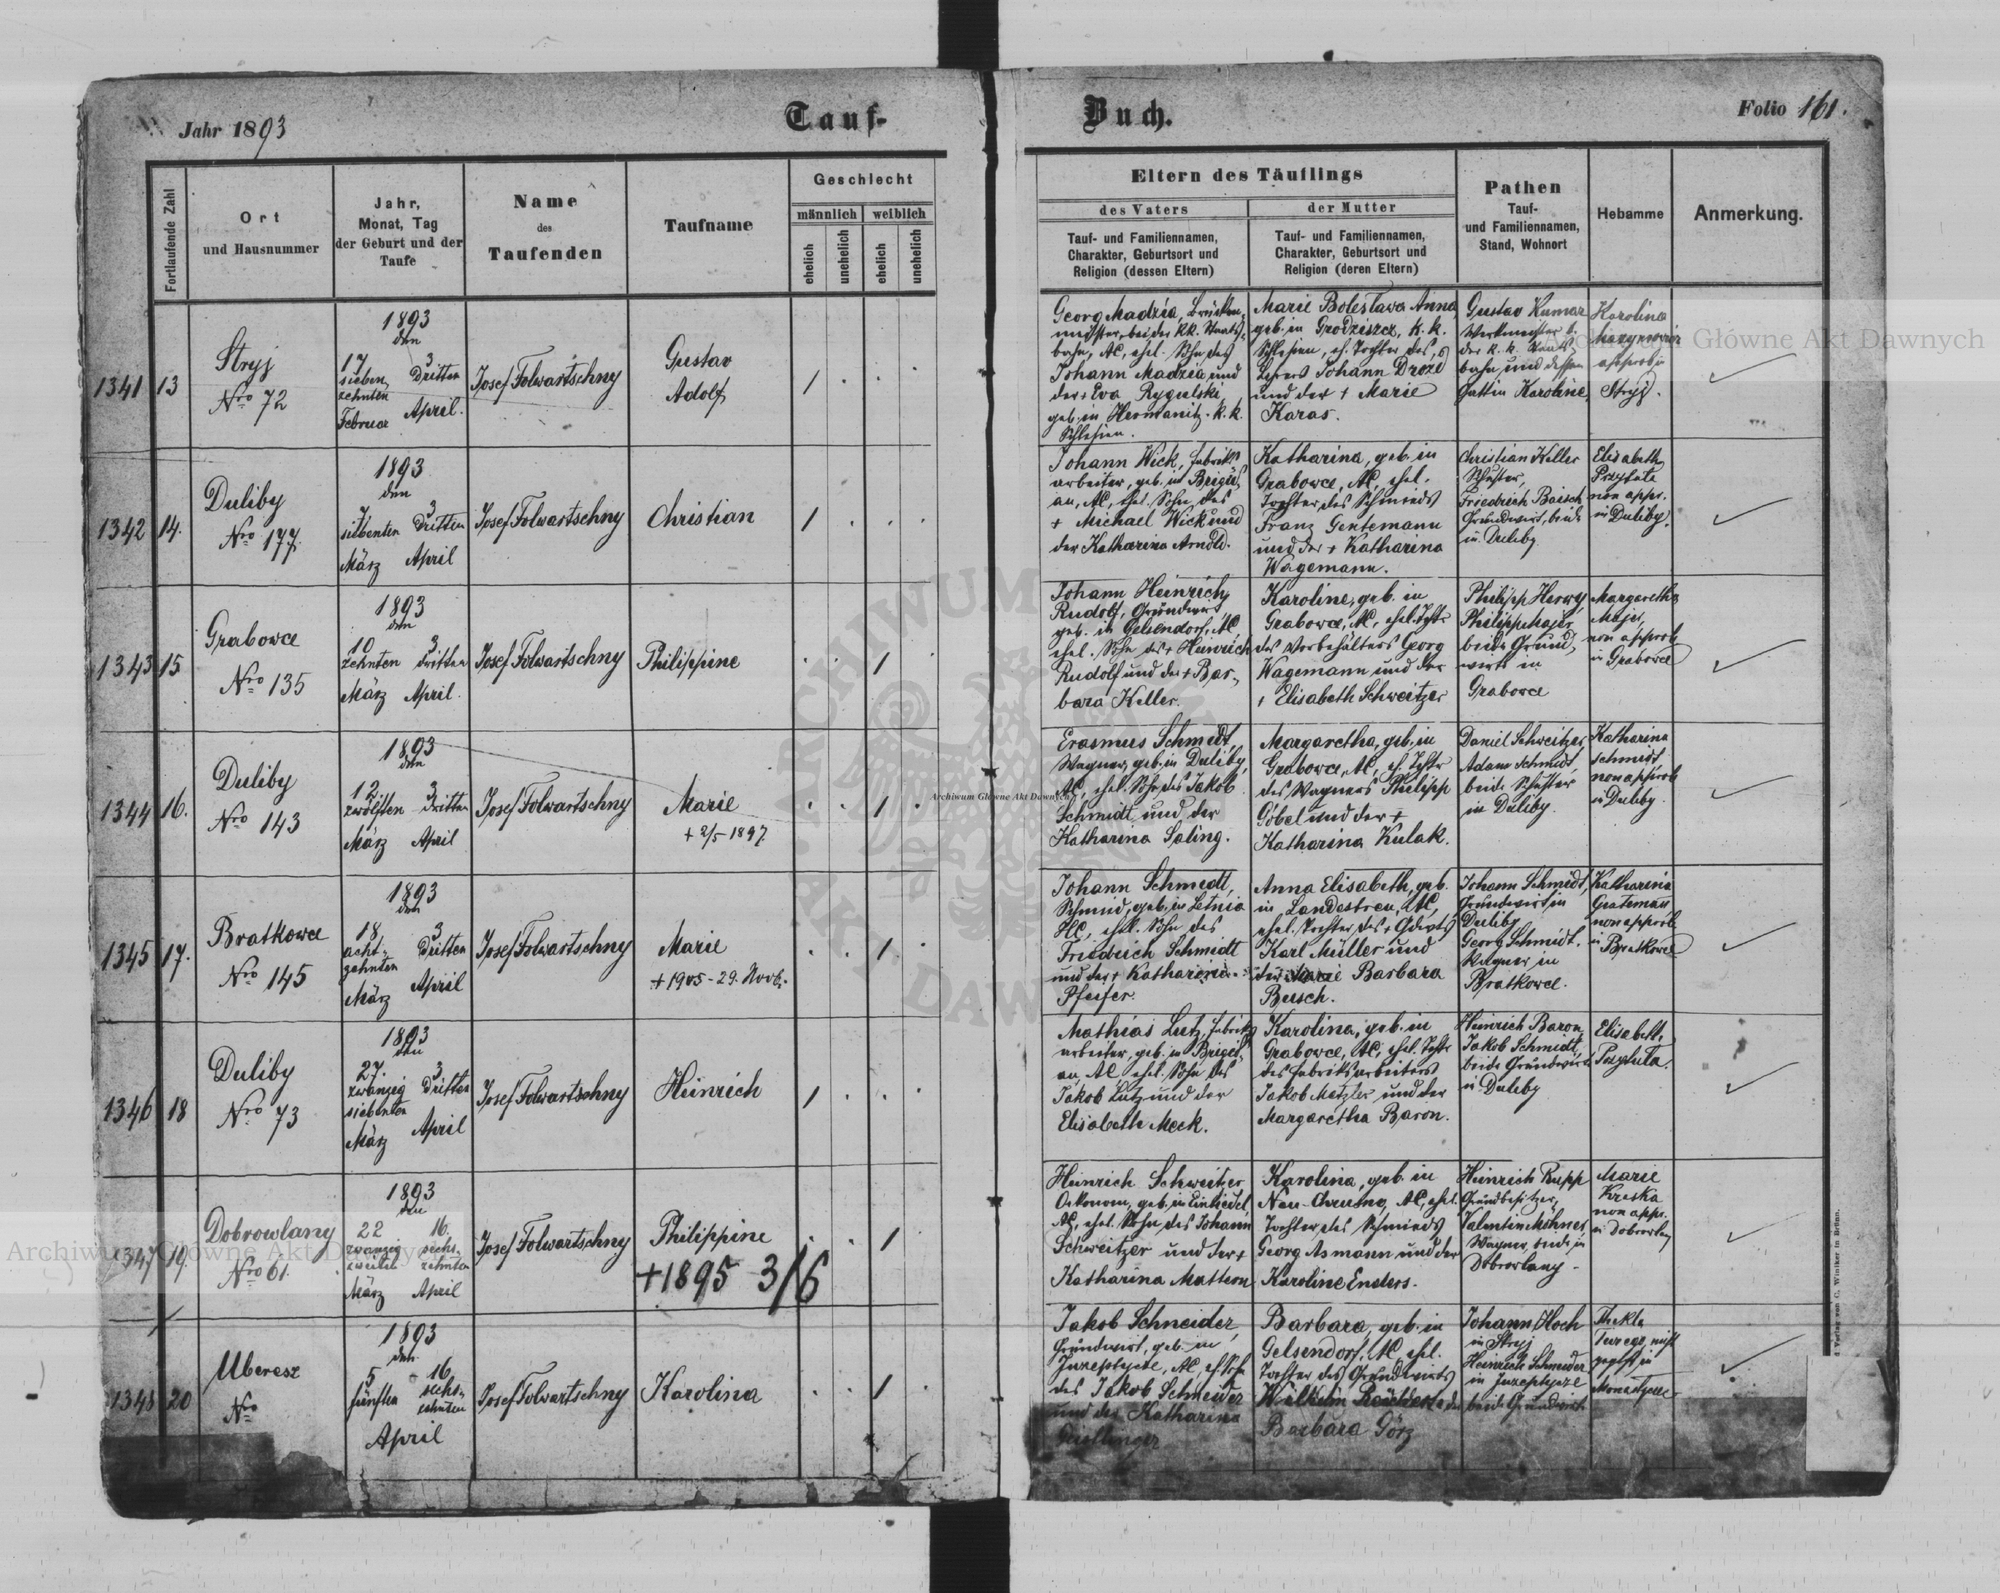 Jahr 1893
Tauf-
Buch.
Folio 161.
Fortlaufende Zahl
Ort
und Hausnummer
Jahr,
Monat, Tag
der Geburt und der
Taufe
Name
des
Taufenden
Taufname
Geschlecht
männlich
weiblich
ehelich
unehelich
ehelich
unehelich
Eltern des Täuflings
des Vaters
Tauf- und Familiennamen,
Charakter, Geburtsort und
Religion (dessen Eltern)
der Mutter
Tauf- und Familiennamen,
Charakter, Geburtsort und
Religion (deren Eltern)
Pathen
Tauf-
und Familiennamen,
Stand, Wohnort
Hebamme
Anmerkung.
1341 13
Stryj
Nro 72
1893
den
17 3
sieben Dritten
zehnten
Februar April.
Josef Folwartschny
Gustav
Adolf
1
Georg Madzia, Brücken-
meister, bei der kk. Staats-
bahn, AC, ehel. Sohn des
Johann Madzia und
der + Eva Rygulski,
geb. in Hermanitz. k. k.
Schlesien.
Marie Boleslava Anna
geb. in Grodziszcz, k. k.
Schlesien, eh. Tochter des
Lehrers Johann Drozd
und der + Marie
Karas.
Gustav Kumar
Werkmeister b.
der k. k. Staats-
bahn, und dessen
Gattin Karoline,
Karolina
approb. in
Stryj.
1342 14.
Duliby
Nro 177.
1893
den
7 3
siebenten Dritten
März April
Josef Folwartschny
Christian
1
Johann Wick, Fabriks
arbeiter, geb. in Brigid
au, AC, ehel. Sohn des
+ Michael Wick und
der Katharina Arndt.
Katharina, geb. in
Grabowce, AC, ehel.
Tochter des Schmieds
Franz Gentemann
und der + Katharina
Wagemann.
Christian Keller
Schuster,
Friedrich Baisch
Grundwirt, beide
in Duliby.
Elisabeth
Przybuta
non appr.
in Duliby.
1343 15
Grabowce
Nro 135
1893
den
10 3
zehnten dritten
März April.
Josef Folwartschny
Philippine
1
Johann Heinrich
Rudolf, Grundwirt
geb. in Gelsendorf, AC
ehel. Sohn des + Heinrich
Rudolf und der + Bar-
bara Keller.
Karoline, geb. in
Grabowce, AC, ehel. Tchtr
des Vorbehälters Georg
Wagemann und der
+ Elisabeth Schweitzer
Philipp Herwy
Philipp Majer
beide Grund-
wirte in
Grabowce
Margaretha
Majer,
non approb.
in Grabowce
1344 16.
Duliby
Nro 143
1893
den
12. 3
zwölften Dritten
März April
Josef Folwartschny
Marie
+ 2/5 1897.
1
Erasmus Schmidt,
Wagner, geb. in Duliby,
AC, ehel. Sohn des Jakob
Schmidt und der
Katharina Saling.
Margaretha, geb. in
Grabowce, AC, eh. Tchtr
des Wagners Philipp
Göbel und der +
Katharina Kulak.
Daniel Schweitzer,
Adam Schmidt,
beide Schuster
in Duliby.
Katharina
Schmidt,
non approb
in Duliby.
1345 17.
Bratkowce
Nro 145
1893
den
18 3
acht- Dritten
zehnten
März April
Josef Folwartschny
Marie
+ 1905 - 29. Novb.
1
Johann Schmidt,
Schmid, geb. in Letnia
HC, ehel. Sohn des
Friedrich Schmidt
und der + Katharina
Pfeifer.
Anna Elisabeth, geb.
in Landestreu, AC,
ehel. Tochter des
Karl Müller und
der Marie Barbara
Beisch.
Johann Schmidt,
Grundwirt in
Duliby
Georg Schmidt.
Wagner in
Bratkowce.
Katharina
non approb
in Bratkowce
1346 18
Duliby
Nro 73
1893
den
27. 3
zwanzig Dritten
siebenten
März April
Josef Folwartschny
Heinrich
1
Mathias Lutz, Fabriks
arbeiter, geb. in Brigid-
au, AC, ehel. Sohn des
Jakob Lutz und der
Elisabeth Meck.
Karolina, geb. in
Grabowce, AC, ehel. Tchtr
des Fabriksarbeiters
Jakob Metzler und der
Margaretha Baron.
Heinrich Baron
Jakob Schmidt,
beide Grundwirte
in Duliby
Elisabeth
Przybuta.
1347 19.
Dobrowlany
Nro 61.
1893
den
22 16.
zwanzig sechs-
zweiten zehnten
März April
Josef Folwartschny
Philippine
+1895 3/6
1
Heinrich Schweitzer
Oekonom, geb. in Einsiedel,
AC, ehel. Sohn des Johann
Schweitzer und der +
Katharina Mattern
Karolina, geb. in
Neu Chrusno, AC, ehel.
Tochter des Schmieds
Georg Asmann und der
Karoline Enders.
Heinrich Rupp
Grundbesitzer,
Valentin Möhner,
Wagner, beide in
Dobrowlany.
Marie
Kreska
non appr.
in Dobrowlany
1348 20
Uberesz
Nro
1893
den
5 16
fünften sechs-
zehnten
April
Josef Folwartschny
Karolina
1
Jakob Schneider,
Grundwirt, geb. in
AC, eh. Sohn
des Jakob Schneider
und der Katharina
Barbara, geb. in
Gelsendorf, AC, ehel.
Tochter des Grundwirts
Wilhelm
Barbara Görz
Johann Hoch
in Stryj
Heinrich Schneider
in
beide Grundwirte
Thekla
nicht
geprft in
Archiwum Główne Akt Dawnych
Archiwum Główne Akt Dawnych
Archiwum Główne Akt Dawnych
ARCHIWUM
AKT DAWNYCH
Verlag von C. Winiker in Brünn.